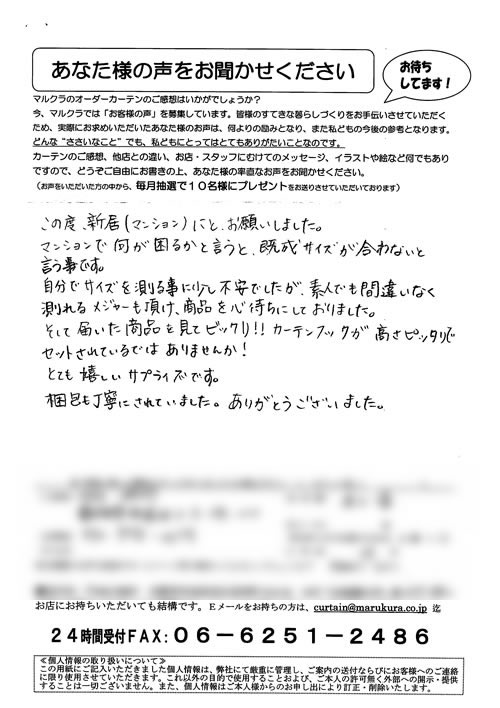 あなた様の声をお聞かせください
お待ち
してます!
マルクラのオーダーカーテンのご感想はいかがでしょうか?
今、マルクラでは「お客様の声」を募集しています。皆様のすてきな暮らしづくりをお手伝いさせていただく
ため、実際にお求めいただいたあなた様のお声は、何よりの励みとなり、また私どもの今後の参考となります。
どんな“ささいなこと”でも、私どもにとってはとてもありがたいことなのです。
カーテンのご感想、他店との違い、お店・スタッフにむけてのメッセージ、イラストや絵など何でもあり
ですので、どうぞご自由にお書きの上、あなた様の率直なお声をお聞かせください。
(お声をいただいた方の中から、毎月抽選で10名様にプレゼントをお送りさせていただいております)
この度、新居(マンション)にと、お願いしました。
マンションで何が困るかと言うと、既成サイズが合わないと
言う事です。
自分でサイズを測る事に少し不安でしたが、素人でも間違いなく
測れるメジャーも頂け、商品を心待ちにしておりました。
そして届いた商品を見てビックリ!! カーテンフックが高さピッタリで
セットされているではありませんか!
とても嬉しいサプライズです。
梱包も丁寧にされていました。ありがとうございました。
お店にお持ちいただいても結構です。Eメールをお持ちの方は、curtain@marukura.co.jp 迄
24時間受付FAX:06-6251-2486
≪個人情報の取り扱いについて≫
この用紙にご記入いただきました個人情報は、弊社にて厳重に管理し、ご案内の送付ならびにお客様へのご連絡
に限り使用させていただきます。これ以外の目的で使用することおよび、ご本人の許可無く外部への開示・提供
することは一切ございません。また、個人情報はご本人様からのお申し出により訂正・削除いたします。